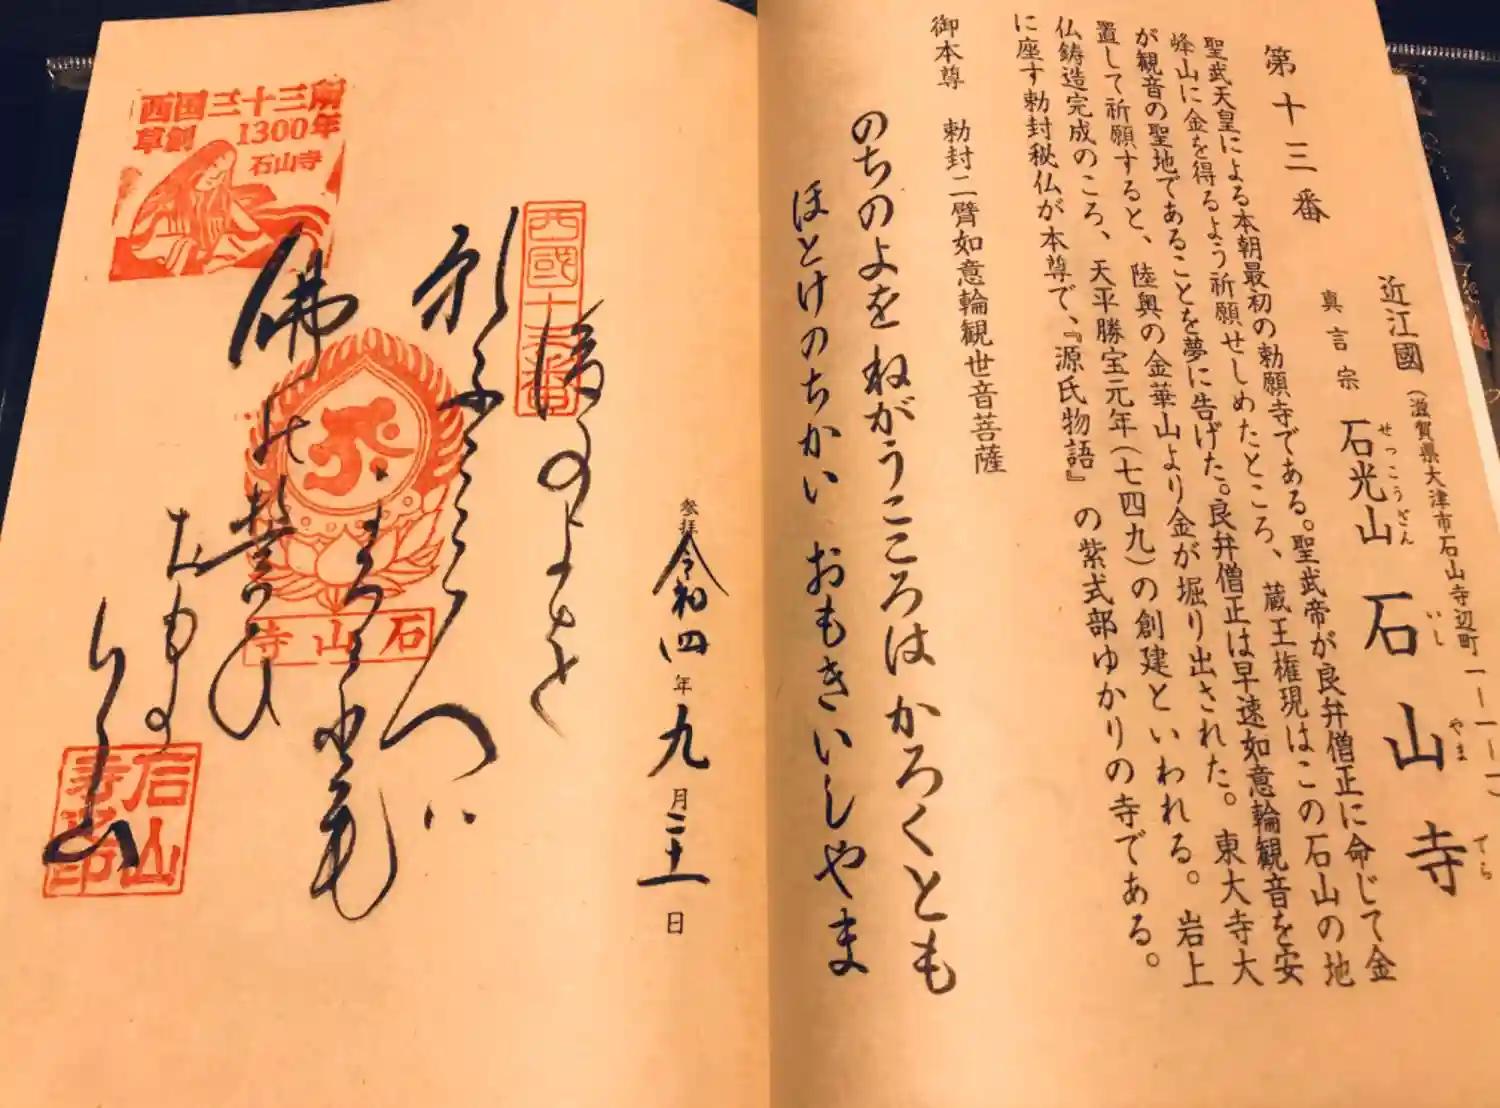 第十三番
近江國(滋賀県大津市石山寺辺町一ー一ー一)
真言宗 石光山 石山寺
せっこうざん いし やま でら
聖武天皇による本朝最初の勅願寺である。聖武帝が良弁僧正に命じて金
峰山に金を得るよう祈願せしめたところ、蔵王権現はこの石山の地
が観音の聖地であることを夢に告げた。良弁僧正は早速如意輪観音を安
置して祈願すると、陸奥の金華山より金が堀り出された。東大寺大
仏鋳造完成のころ、天平勝宝元年(七四九)の創建といわれる。岩上
に座す勅封秘仏が本尊で、『源氏物語』の紫式部ゆかりの寺である。
御本尊 勅封二臂如意輪観世音菩薩
のちのよを ねがうこころは かろくとも
ほとけのちかい おもきいしやま
参拝 令和四年九月二十一日
西國十三番
後のよを
願ふこころハ
かろくとも
佛の誓ひ
おもき
いし山
西国三十三所
草創1300年
石山寺
石山寺
石山寺